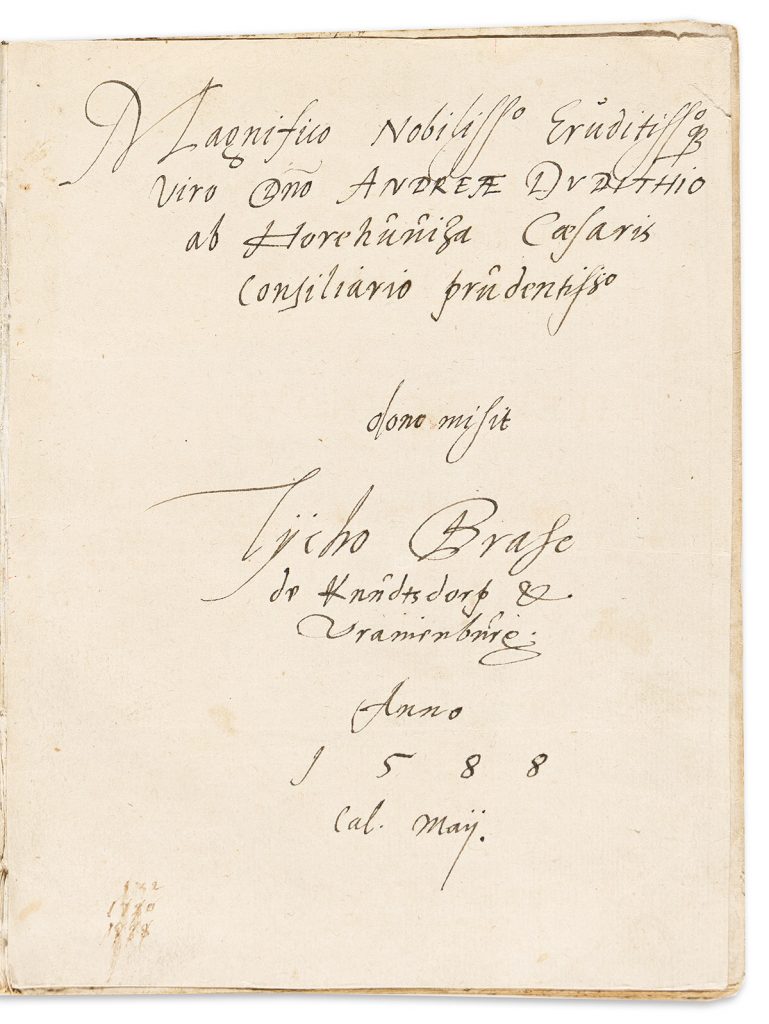 Magnifico Nobiliss° Eruditiss°q̃
Viro Dno ANDREÆ DVDITHIO
ab Horehuniza Cæsaris
Consiliario prudentiss°
dono misit
Tÿcho Brahe
de Knudtsdorp &
Vranienburg.
Anno
1588
Cal. Maij.